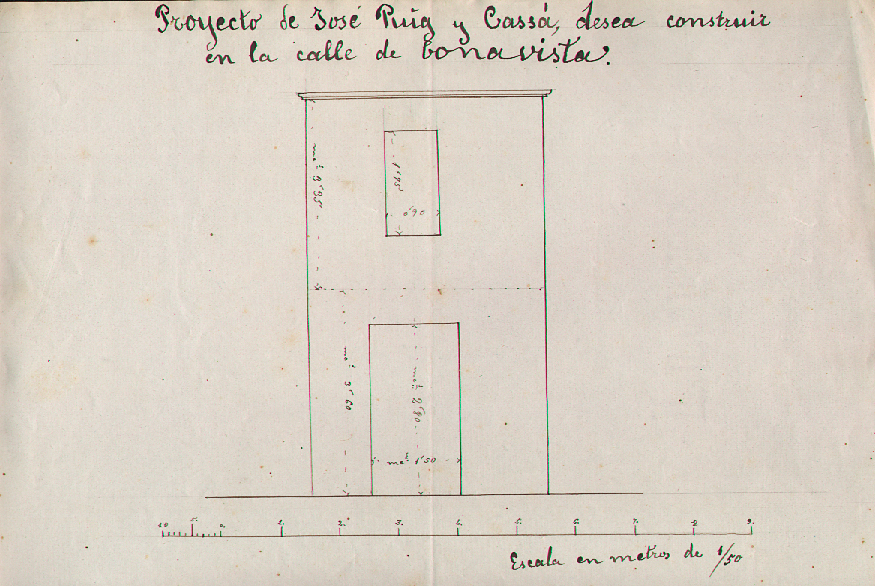 Proyecto de José Puig y Cassá, desea construir
en la calle de bonavista.
0'90
me.ˢ
me.ˢ 3'60
me.ˢ 2'90
me.ˢ 1'50
10 5. 0. 1. 2. 3. 4. 5. 6. 7. 8. 9.
Escala en metros de 1/50